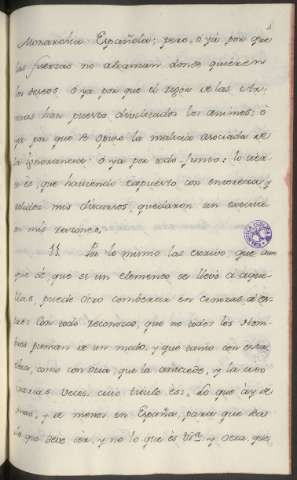 Monarchia Española; pero, ó yá por que
las fuerzas no alcanzan donde quieren
los deseos. ó ya por que el rigor de las Ar-
mas han puesto los animos; ó
ya por que se opuso la malicia asociada de
la ignorancia: ó ya por todo junto: lo cier-
to es, que haviendo expuesto con entereza y
mis discursos, quedaron sin
mis razones.
11. Por lo mismo las escrivo, que aun
que sé que si un elemento se llevó aque-
llas, puede otro combertir en cenizas á es-
tas: Con todo reconozco, que no todos los hom-
bres piensan de un modo, y que tanto con esta
como con que la antecede, y la
varias veces Lo que ay de
mas, y de menos en España, para que sea
lo que deve ser, y no lo que es y otra, que